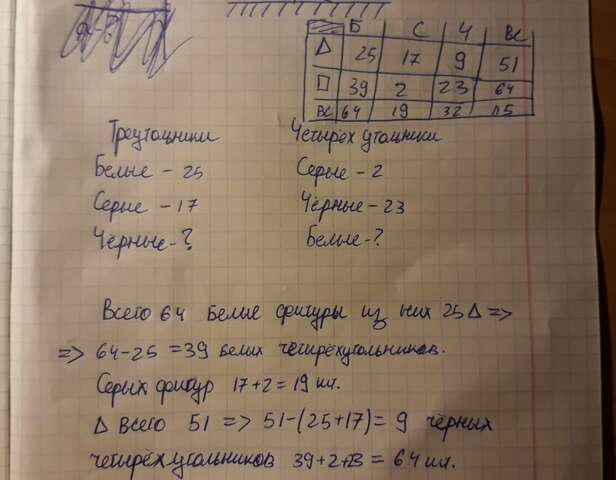 Б С Ч Вс
Δ 25 17 9 51
□ 39 2 23 64
Вс 64 19 32 115
Треугольники Четырёхугольники
Белые - 25 Серые - 2
Серые - 17 Чёрные - 23
Чёрные - ? Белые - ?
Всего 64 белые фигуры из них 25 Δ =>
=> 64-25 = 39 белых четырёхугольников.
Серых фигур 17+2 = 19 шт.
Δ Всего 51 => 51-(25+17) = 9 чёрных
четырёхугольников 39+2+23 = 64 шт.